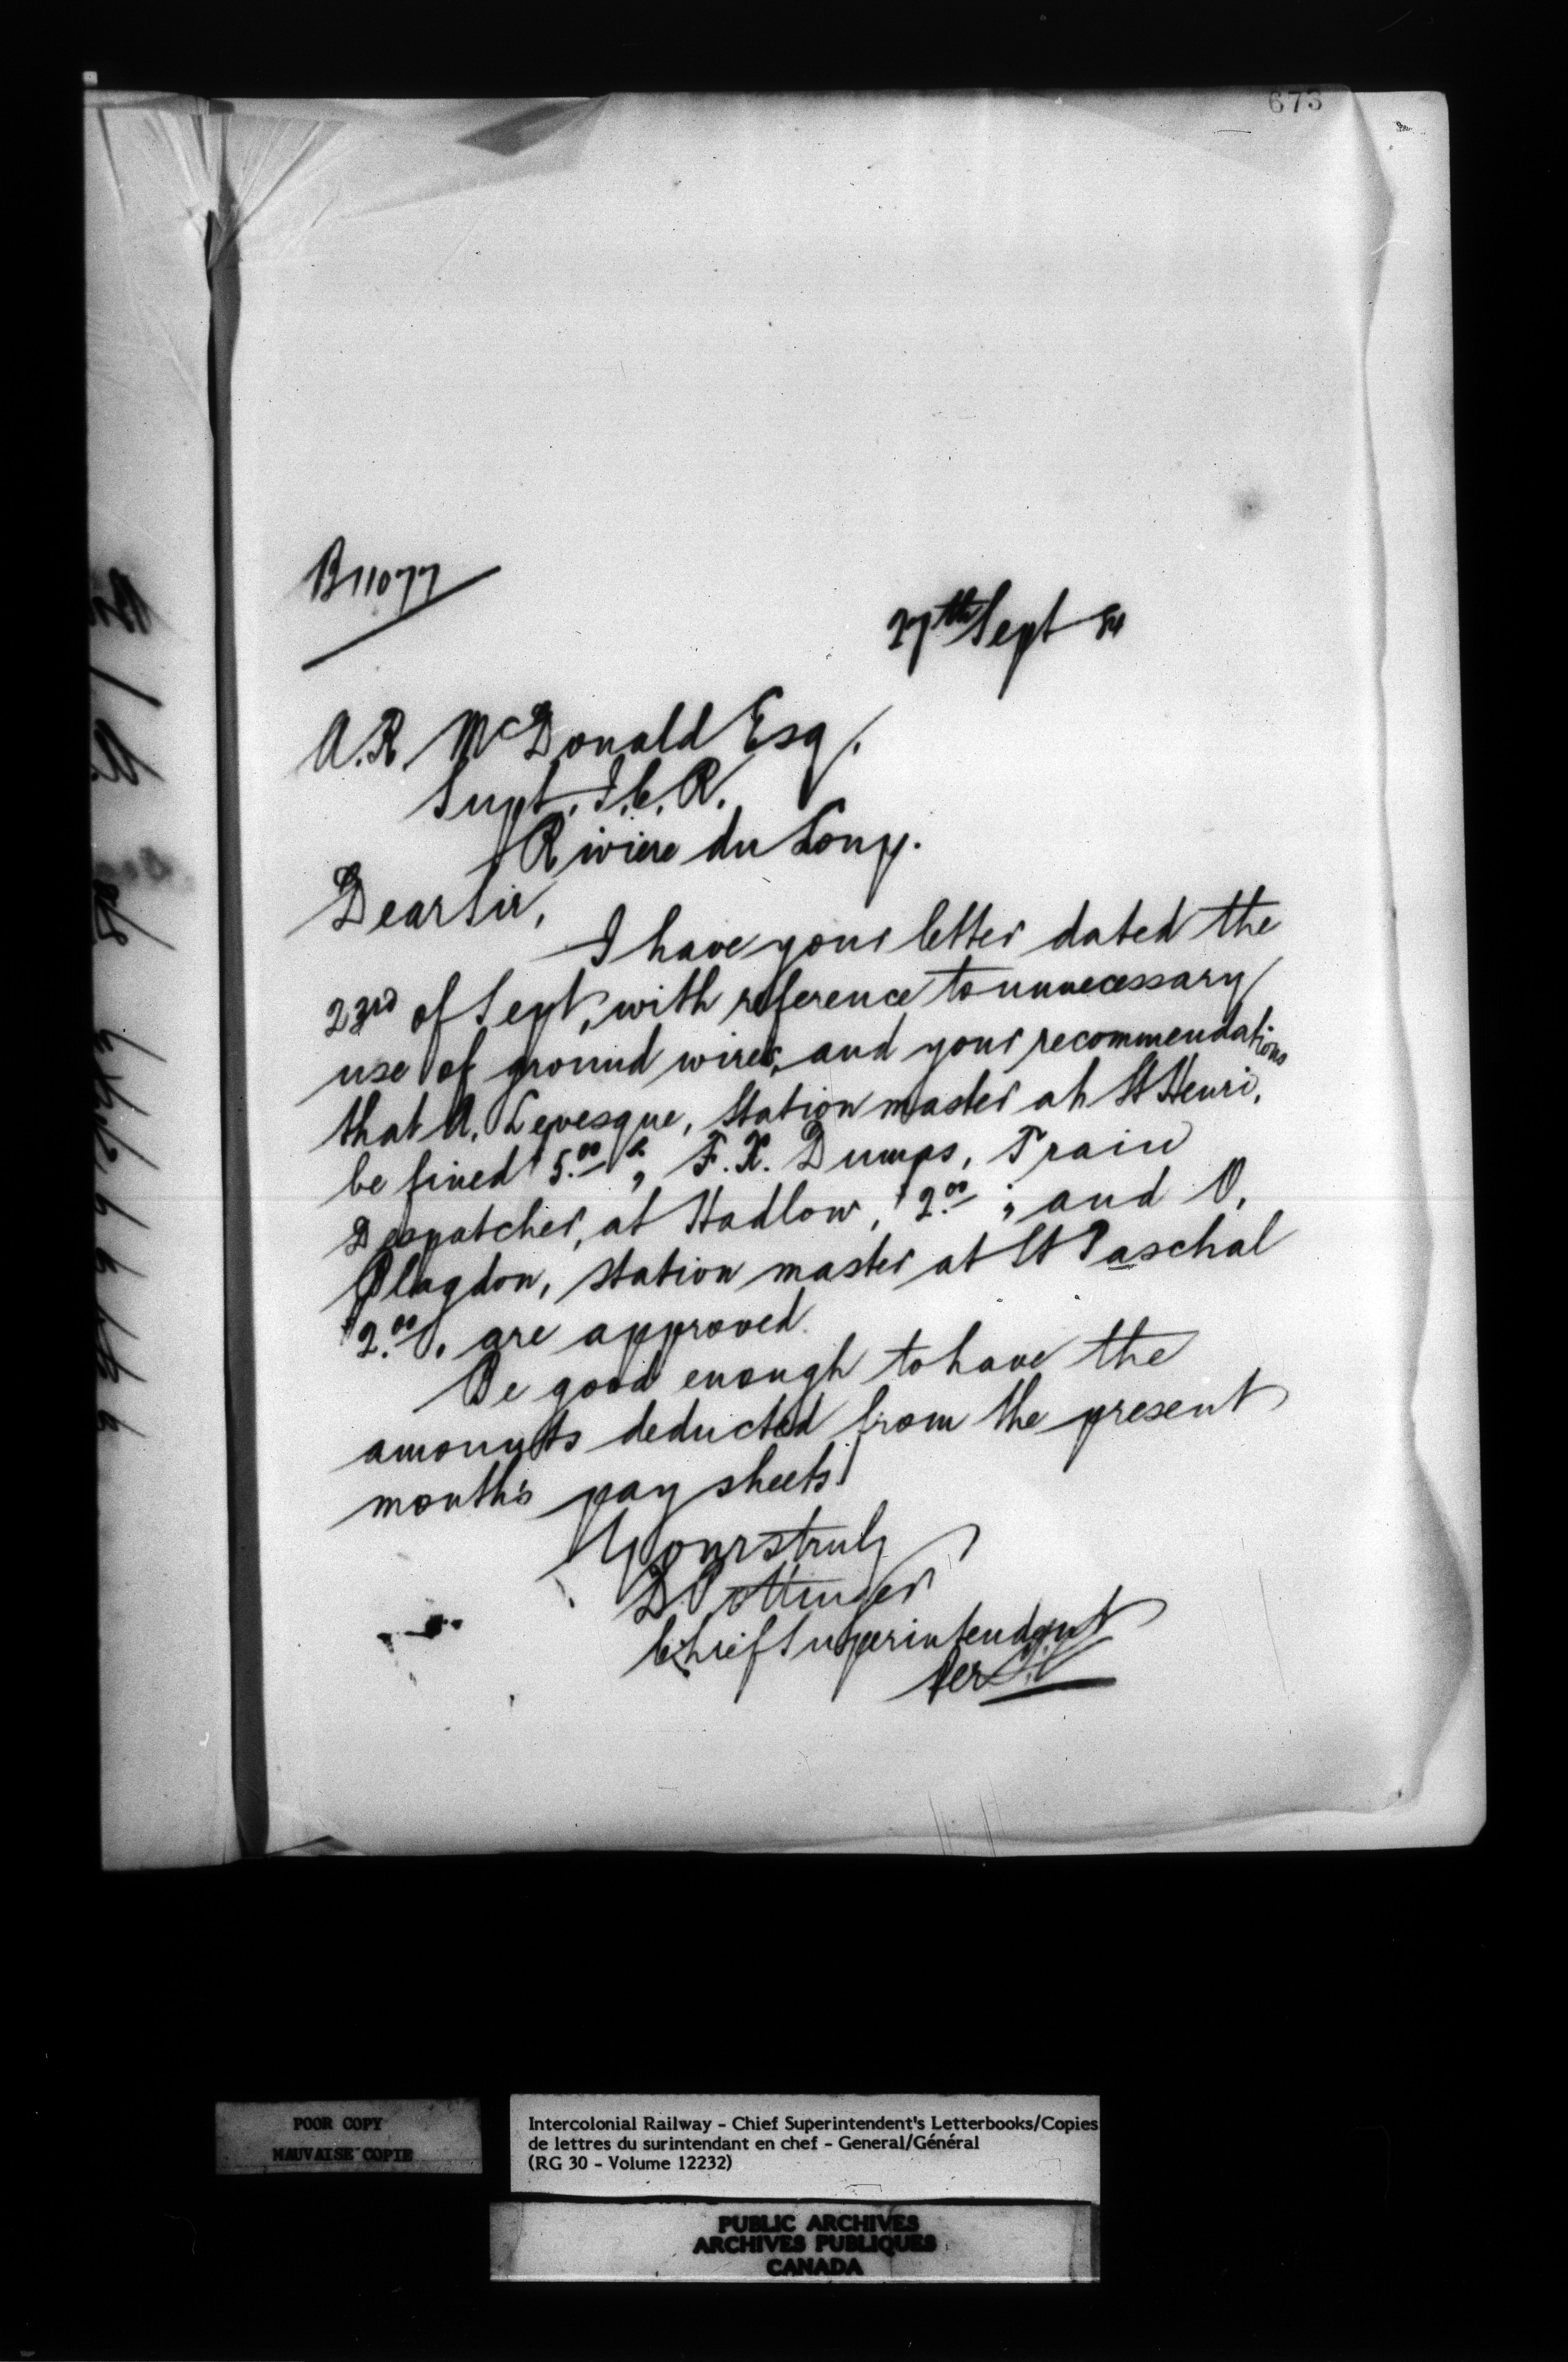 673
B11077
27th Sept 84
A.R. McDonald Esq.
Supt. I.C.R.
Riviere du Loup.
Dear Sir,
I have your letter dated the
23rd of Sept, with reference to unnecessary
use of ground wires, and your recommendations
that A. Levesque, Station master at St Henri,
be fined $5.00; F.X. Dumas, Train
Despatcher, at Hadlow, $2.00; and O.
Blagdon, Station master at St Paschal
$2.00, are approved.
Be good enough to have the
amounts deducted from the present
month's pay sheets
Yours truly
D. Pottinger
Chief Superintendent
Per
POOR COPY
MAUVAISE COPIE
Intercolonial Railway - Chief Superintendent's Letterbooks/Copies
de lettres du surintendant en chef - General/Général
(RG 30 - Volume 12232)
PUBLIC ARCHIVES
ARCHIVES PUBLIQUES
CANADA